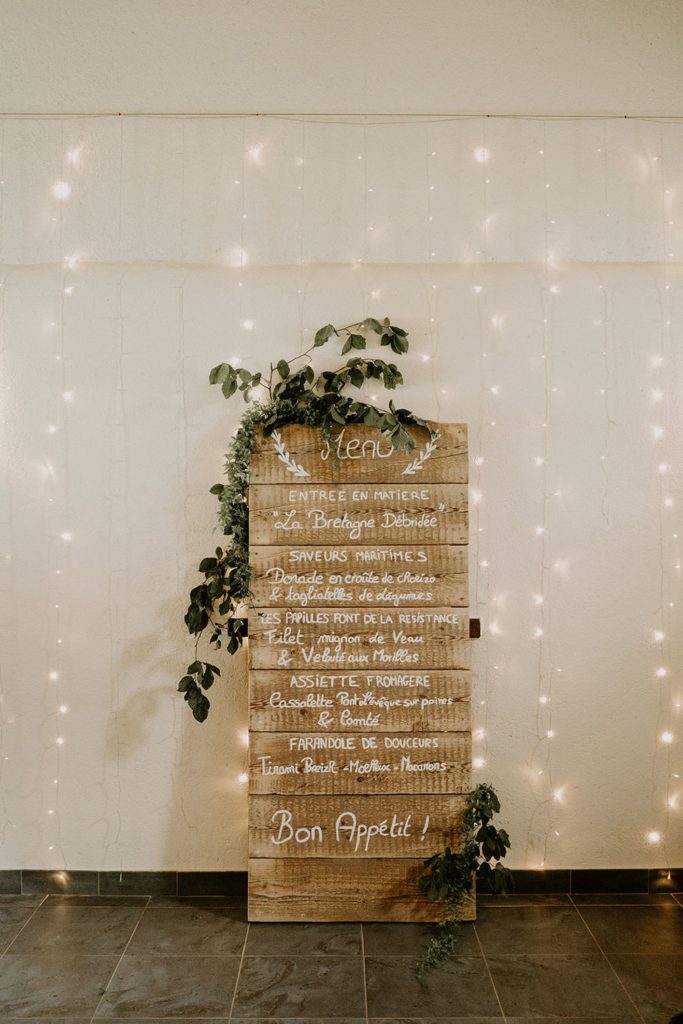 Menu
ENTREE EN MATIERE
"La Bretagne Débridée"
SAVEURS MARITIMES
Dorade en croûte de chorizo
& tagliatelles de légumes
LES PAPILLES FONT DE LA RESISTANCE
Filet mignon de Veau
& Velouté aux Morilles
ASSIETTE FROMAGERE
Cassolette Pont l'évêque sur poires
& Comté
FARANDOLE DE DOUCEURS
Tirami Breizh - Moelleux - Macarons
Bon Appétit !